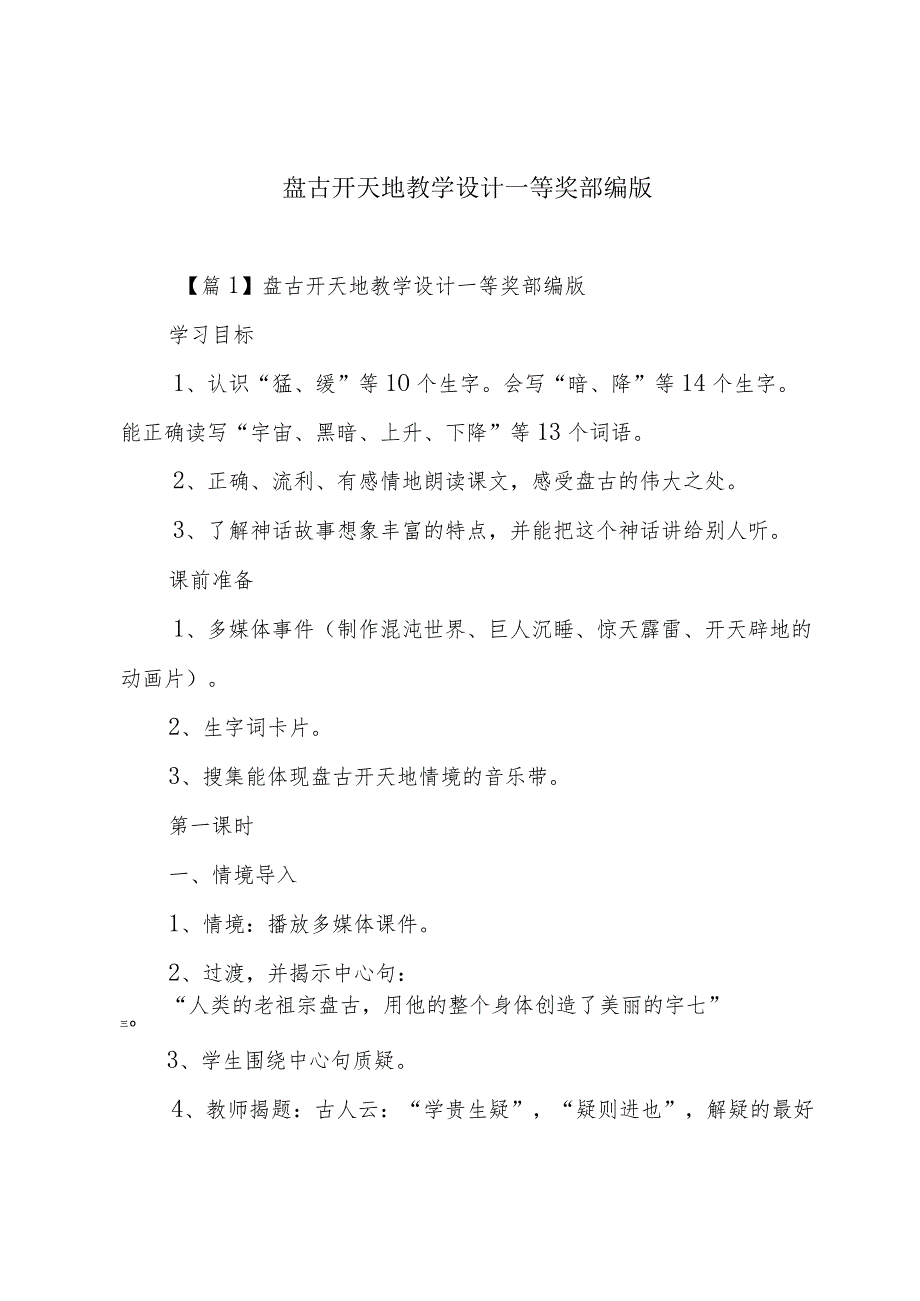 盘古开天地教学设计一等奖部编版
【篇1】盘古开天地教学设计一等奖部编版
学习目标
1、认识“猛、缓”等10个生字。会写“暗、降”等14个生字。
能正确读写“宇宙、黑暗、上升、下降”等13个词语。
2、正确、流利、有感情地朗读课文，感受盘古的伟大之处。
3、了解神话故事想象丰富的特点，并能把这个神话讲给别人听。
课前准备
1、多媒体事件（制作混沌世界、巨人沉睡、惊天霹雷、开天辟地的
动画片）。
2、生字词卡片。
3、搜集能体现盘古开天地情境的音乐带。
第一课时
一、情境导入
1、情境：播放多媒体课件。
2、过渡，并揭示中心句：
“人类的老祖宗盘古，用他的整个身体创造了美丽的宇七”
三。
3、学生围绕中心句质疑。
4、教师揭题：古人云：“学贵生疑”，“疑则进也”，解疑的最好